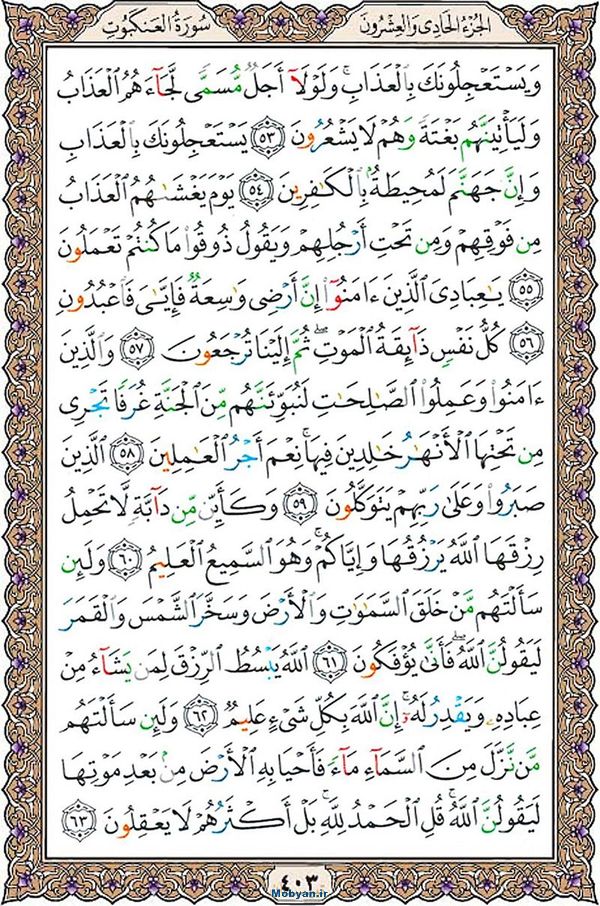 الجُزءُ الحَادِى وَالعِشرُونَ سُورَةُ العَنكَبُوتِ
وَيَسْتَعْجِلُونَكَ بِٱلْعَذَابِ ۚ وَلَوْلَآ أَجَلٌ مُّسَمًّى لَّجَآءَهُمُ ٱلْعَذَابُ
وَلَيَأْتِيَنَّهُم بَغْتَةً وَهُمْ لَا يَشْعُرُونَ ﴿٥٣﴾ يَسْتَعْجِلُونَكَ بِٱلْعَذَابِ
وَإِنَّ جَهَنَّمَ لَمُحِيطَةٌۢ بِٱلْكَـٰفِرِينَ ﴿٥٤﴾ يَوْمَ يَغْشَىٰهُمُ ٱلْعَذَابُ
مِن فَوْقِهِمْ وَمِن تَحْتِ أَرْجُلِهِمْ وَيَقُولُ ذُوقُوا۟ مَا كُنتُمْ تَعْمَلُونَ
﴿٥٥﴾ يَـٰعِبَادِىَ ٱلَّذِينَ ءَامَنُوٓا۟ إِنَّ أَرْضِى وَٰسِعَةٌ فَإِيَّـٰىَ فَٱعْبُدُونِ
﴿٥٦﴾ كُلُّ نَفْسٍ ذَآئِقَةُ ٱلْمَوْتِ ۖ ثُمَّ إِلَيْنَا تُرْجَعُونَ ﴿٥٧﴾ وَٱلَّذِينَ
ءَامَنُوا۟ وَعَمِلُوا۟ ٱلصَّـٰلِحَـٰتِ لَنُبَوِّئَنَّهُم مِّنَ ٱلْجَنَّةِ غُرَفًا تَجْرِى
مِن تَحْتِهَا ٱلْأَنْهَـٰرُ خَـٰلِدِينَ فِيهَا ۚ نِعْمَ أَجْرُ ٱلْعَـٰمِلِينَ ﴿٥٨﴾ ٱلَّذِينَ
صَبَرُوا۟ وَعَلَىٰ رَبِّهِمْ يَتَوَكَّلُونَ ﴿٥٩﴾ وَكَأَيِّن مِّن دَآبَّةٍ لَّا تَحْمِلُ
رِزْقَهَا ٱللَّهُ يَرْزُقُهَا وَإِيَّاكُمْ ۚ وَهُوَ ٱلسَّمِيعُ ٱلْعَلِيمُ ﴿٦٠﴾ وَلَئِن
سَأَلْتَهُم مَّنْ خَلَقَ ٱلسَّمَـٰوَٰتِ وَٱلْأَرْضَ وَسَخَّرَ ٱلشَّمْسَ وَٱلْقَمَرَ
لَيَقُولُنَّ ٱللَّهُ ۖ فَأَنَّىٰ يُؤْفَكُونَ ﴿٦١﴾ ٱللَّهُ يَبْسُطُ ٱلرِّزْقَ لِمَن يَشَآءُ مِنْ
عِبَادِهِۦ وَيَقْدِرُ لَهُۥٓ ۚ إِنَّ ٱللَّهَ بِكُلِّ شَىْءٍ عَلِيمٌ ﴿٦٢﴾ وَلَئِن سَأَلْتَهُم
مَّن نَّزَّلَ مِنَ ٱلسَّمَآءِ مَآءً فَأَحْيَا بِهِ ٱلْأَرْضَ مِنۢ بَعْدِ مَوْتِهَا
لَيَقُولُنَّ ٱللَّهُ ۚ قُلِ ٱلْحَمْدُ لِلَّهِ ۚ بَلْ أَكْثَرُهُمْ لَا يَعْقِلُونَ ﴿٦٣﴾
٤٠٣
Mobyan.ir